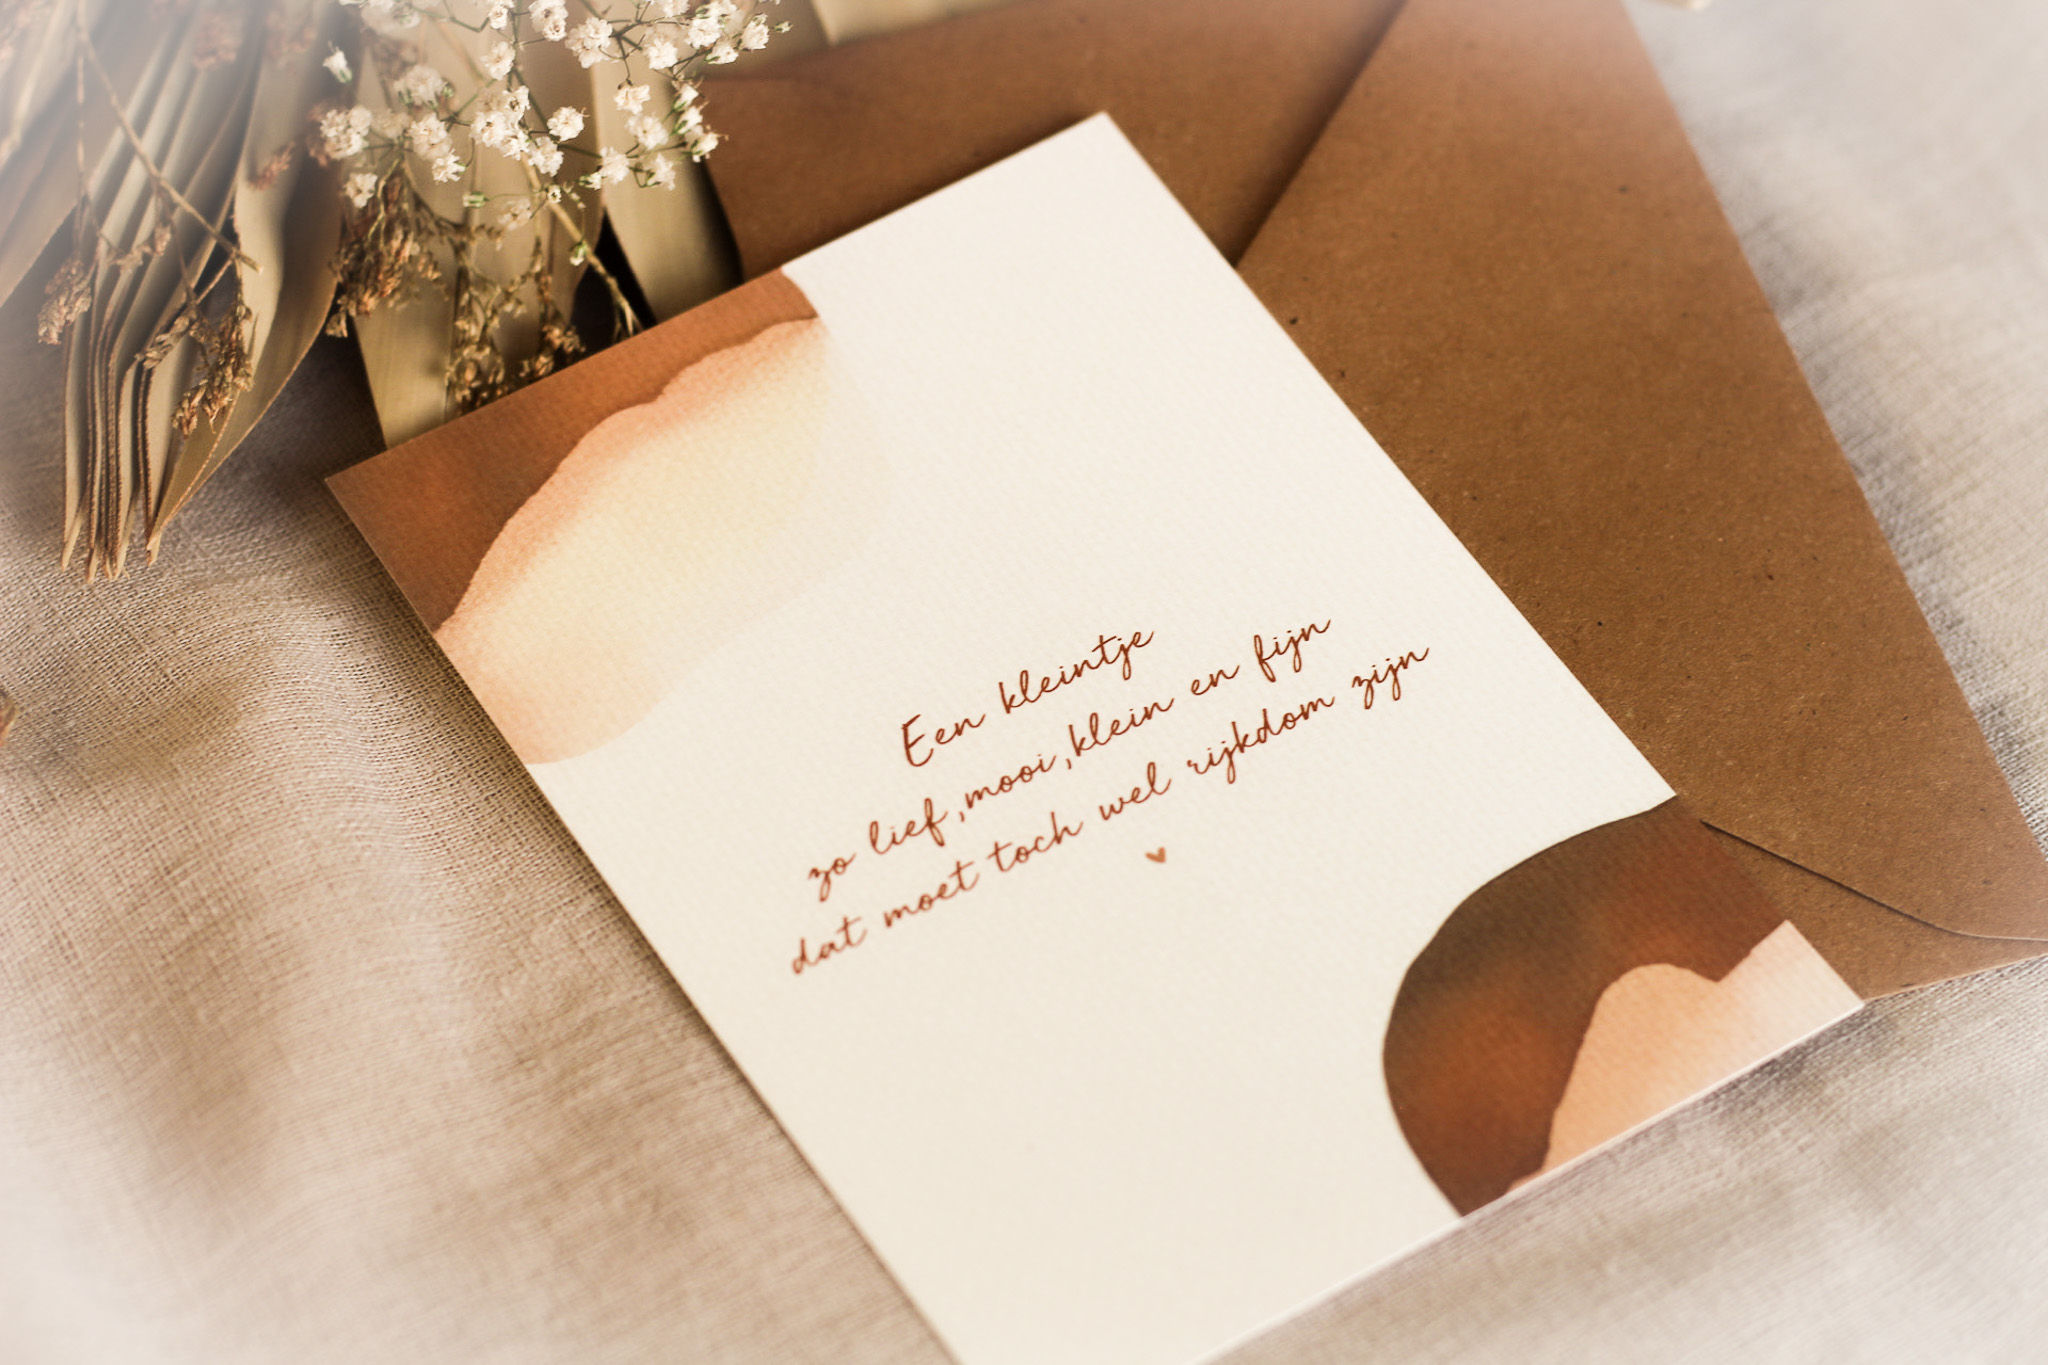 Een kleintje
zo lief, mooi, klein en fijn
dat moet toch wel rijkdom zijn